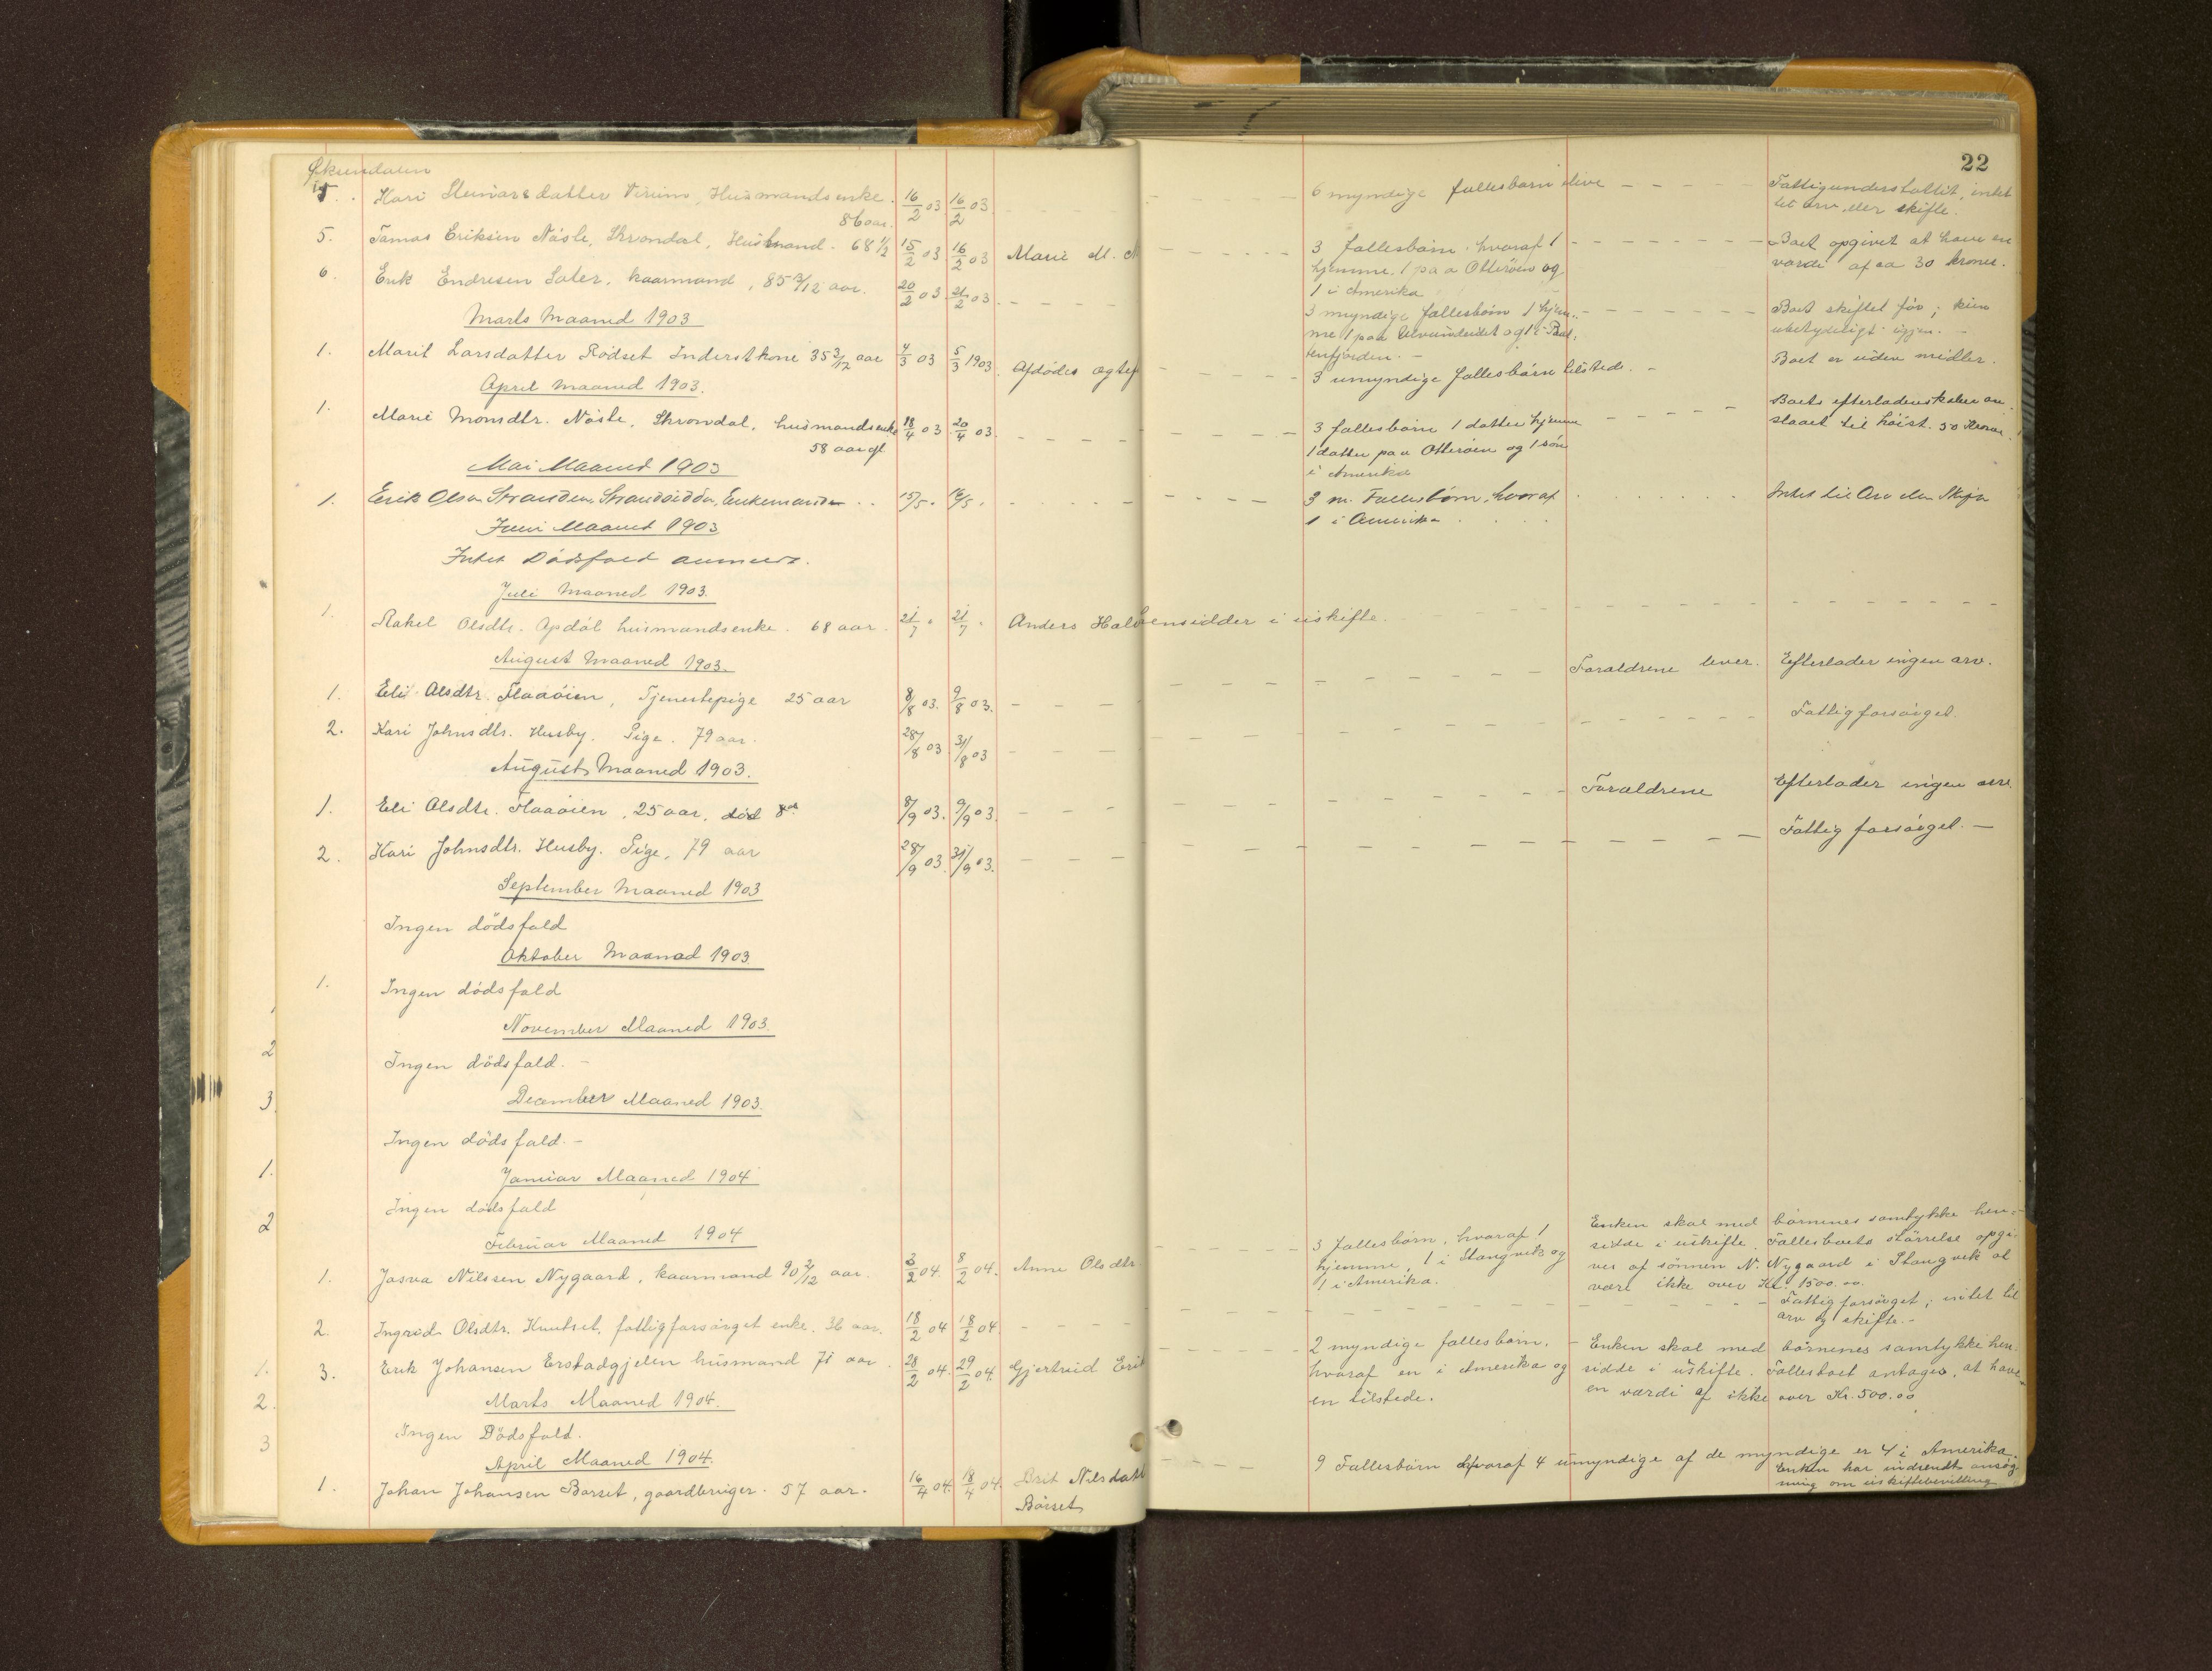 Økundalen
22
5. Kari Steinarsdatter Virum, Husmandsenke. 16/2 03 16/2 03. 6 myndige fallesbarn ilive Fattigunderstøttet, intet
86 aar. til arv eller skifte.
5. Tamas Eriksen Nåsle, Skrondal, Husmand. 68 1/2 15/2 03. 16/2 03 Marie M. N 3 fallesbørn hvoraf 1 Boet opgivet at have en
hjemme. 1 paa Otterøen og værdi af ca 30 kroner.
1 i Amerika
6. Erik Endresen Sæter, kaarmand, 85 3/12 aar. 20/2 03. 21/2 03. 3 myndige fallesbörn 1 hjem- Boet skiftet för; kun
me 1 paa og 1 i Bat- ubetydeligt igjen. -
tenfjorden. -
Marts Maaned 1903
1. Marit Larsdatter Rödset Inderstkone 35 3/12 aar 4/3 03 5/3 1903. Afdødes ægtef 3 umyndige fallesbörn tilstede. - Boet er uden midler.
April Maaned 1903.
1. Marie Monsdtr. Nåsle, Skrondal, husmandsenke 18/4 03 20/4 03. 3 fallesbörn 1 datter hjemme Boets efterladenskaber an-
58 aar gl 1 datter paa Otteröen og 1 sön slaaet til höist. 50 Kroner.
i Amerika
Mai Maaned 1903
1. Erik Olsen Stranden, Strandsidden, Enkemand 15/5. 16/5. 3 m. Fallesbörn, hvoraf Intet til Arv eller Skifte
1 i Amerika
Juni Maaned 1903
Intet Dödsfald anmeldt.
Juli Maaned 1903.
1. Rakel Olsdtr. Opdöl husmandsenke. 68 aar. 21/7 " 21/7 " Anders Halvorsen sidder i uskifte.
August Maaned 1903.
1. Eli Olsdtr. Flaaöien, Tjenestepige 25 aar 8/8 03. 9/8 03. Forældrene lever. Efterlader ingen arv.
2. Kari Johnsdtr. Husby. Pige. 79 aar. 28/8 03 31/8 03 Fattigforsörget.
August Maaned 1903.
1. Eli Olsdtr. Flaaöien, 25 aar, död 8de 8/9 03. 9/9 03. Forældrene Efterlader ingen arv.
2. Kari Johnsdtr. Husby. Pige, 79 aar 28/9 03. 31/9 03. Fattig forsörget. -
September Maaned 1903
Ingen dödsfald
Oktober Maaned 1903
1. Ingen dödsfald
November Maaned 1903.
2
Ingen dödsfald. -
3. December Maaned 1903.
Ingen dödsfald. -
1. Januar Maaned 1904
Ingen dödsfald
2 Februar Maaned 1904
1. Jasva Nilssen Nygaard, kaarmand 90 2/12 aar. 3/2 04. 8/2 04. Anne Olsdtr. 3 fallesbörn, hvoraf 1 Enken skal med börnenes samtykke hen-
hjemme, 1 i Stangvik og sidde i uskifte. Fallesboets störrelse opgi-
1 i Amerika. ves af sönnen N. Nygaard i Stangvik at
være ikke over Kr. 1500.00.
2. Ingrid Olsdtr. Knutset, fattigforsörget enke. 36 aar. 18/2 04 18/2 04. Fattig forsörget; intet til
arv og skifte. -
1. 3. Erik Johansen Erstadgjelen husmand 71 aar. 28/2 04. 29/2 04. Gjertrud Erik 2 myndige fallesbörn. - Enken skal med börnenes samtykke hen-
hvoraf en i Amerika og sidde i uskifte. Fallesboet antages, at have
en tilstede. en værdi af ikke over Kr. 500.00
2. Marts Maaned 1904.
Ingen Dödsfald.
3 April Maaned 1904.
1. Johan Johansen Borset, gaardbruger. 57 aar. 16/4 04. 18/4 04. Brit Nilsdatt 9 Fallesbörn hvoraf 4 umyndige af de myndige er 4 i Amerika.
Böiset Enken har indsendt ansøg-
ning om uskiftebevilling